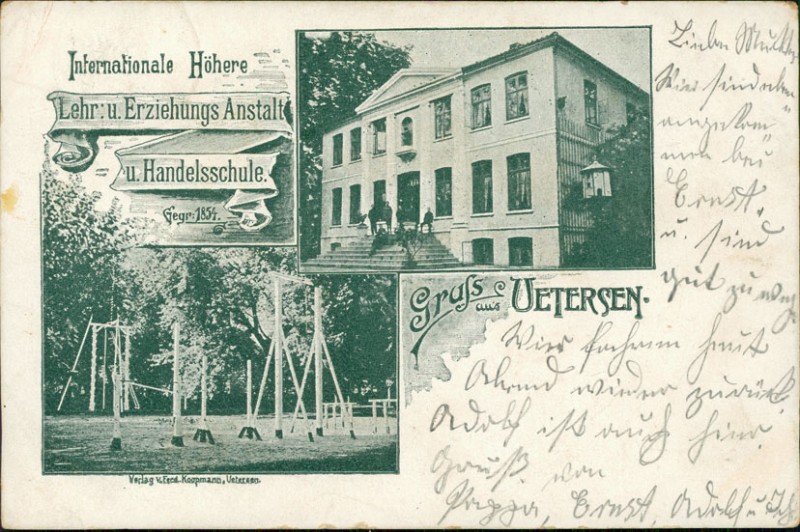 Internationale Höhere
Lehr: u. Erziehungs Anstalt
u. Handelsschule.
Gegr: 1854.
Gruss aus UETERSEN.
Verlag v. Ferd. Koopmann, Uetersen.
Lieben Mutter
Wir sind eben
angekom
men bei
Ernst,
u. sind
gut zu
Wir fahren heut
Abend wieder zurück
Adolf ist auch hier
Gruß von
Pappa, Ernst, Adolf u.